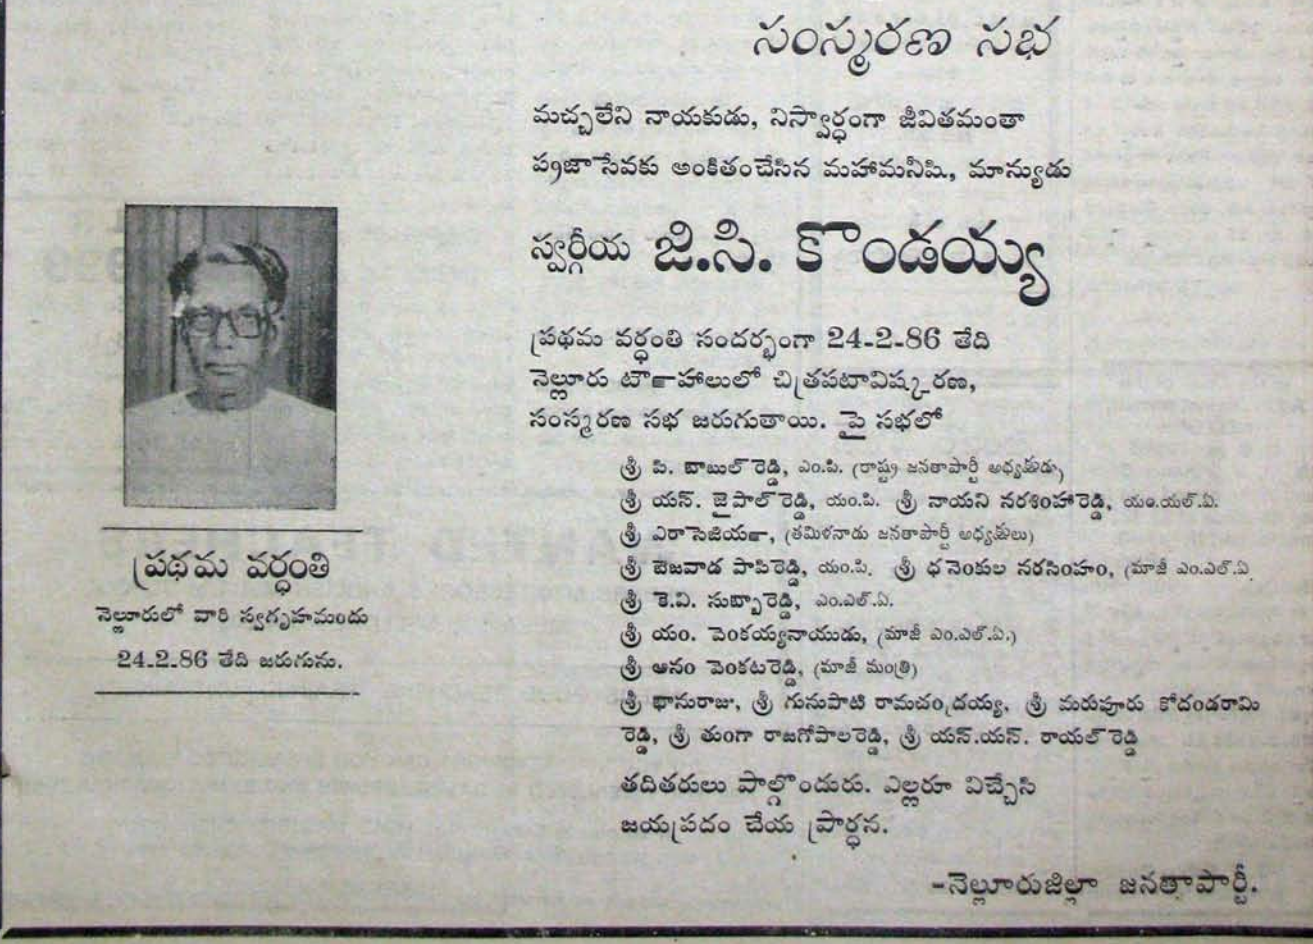 సంస్మరణ సభ
మచ్చలేని నాయకుడు, నిస్వార్థంగా జీవితమంతా
ప్రజాసేవకు అంకితంచేసిన మహామనీషి, మాన్యుడు
స్వర్గీయ జి.సి. కొండయ్య
ప్రథమ వర్ధంతి సందర్భంగా 24-2-86 తేది
నెల్లూరు టౌన్‌హాలులో చిత్రపటావిష్కరణ,
సంస్మరణ సభ జరుగుతాయి. పై సభలో
శ్రీ పి. బాబుల్ రెడ్డి, ఎం.పి. (రాష్ట్ర జనతాపార్టీ అధ్యక్షుడు)
శ్రీ యన్. జైపాల్ రెడ్డి, యం.పి. శ్రీ నాయని నరశింహారెడ్డి, యం.యల్.ఏ.
శ్రీ ఎరాసెజియన్, (తమిళనాడు జనతాపార్టీ అధ్యక్షులు)
శ్రీ బెజవాడ పాపిరెడ్డి, యం.పి. శ్రీ ధనెంకుల నరసింహం, (మాజీ ఎం.ఎల్.ఏ
శ్రీ కె.వి. సుబ్బారెడ్డి, ఎం.ఎల్.ఏ.
శ్రీ యం. వెంకయ్యనాయుడు, (మాజీ ఎం.ఎల్.ఏ.)
శ్రీ ఆనం వెంకటరెడ్డి, (మాజీ మంత్రి)
శ్రీ భానురాజు, శ్రీ గునుపాటి రామచంద్రయ్య, శ్రీ మరుపూరు కోదండరామి
రెడ్డి, శ్రీ తుంగా రాజగోపాలరెడ్డి, శ్రీ యన్.యన్. రాయల్ రెడ్డి
తదితరులు పాల్గొందురు. ఎల్లరూ విచ్చేసి
జయప్రదం చేయ ప్రార్థన.
-నెల్లూరుజిల్లా జనతాపార్టీ.
ప్రథమ వర్ధంతి
నెల్లూరులో వారి స్వగృహమందు
24.2.86 తేది జరుగును.